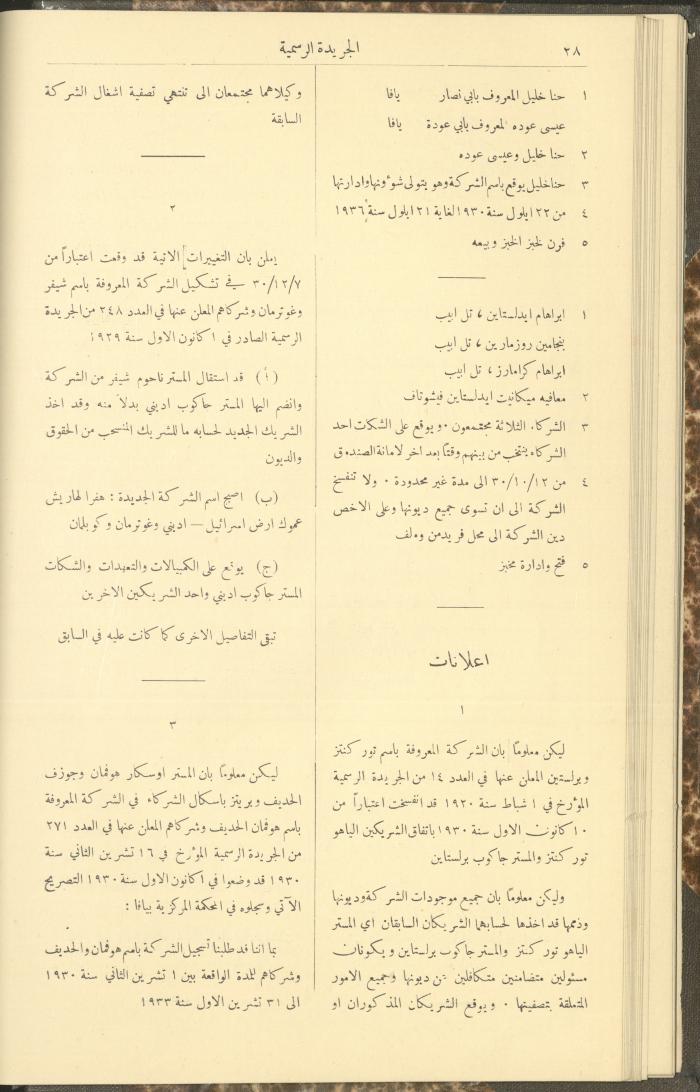 ٢٨
الجريدة الرسمية
١ حنا خليل المعروف بابي نصار يافا
عيسى عوده لمعروف بابي عودة يافا
٢ حنا خليل وعيسى عوده
٣ حنا خليل يوقع باسم الشركة وهو يتولى شؤونها وادارتها
٤ من ٢٢ ايلول سنة ١٩٣٠ لغاية ٢١ ايلول سنة ١٩٣٦
٥ فرن لخبز الخبز وبيعه
١ ابراهام ايدلستاين ، تل ابيب
بنجامين روزمارين ، تل ابيب
ابراهام كرامارز ، تل ابيب
٢ معافيه ميكانيت ايدلستاين فيشوتاف
٣ الشركاء الثلاثة مجتمعون ٠ ويوقع على الشكات احد
الشركاء ينتخب من بينهم وقتاً بعد اخر لامانة الصندوق
٤ من ٣٠/١٠/١٢ الى مدة غير محدودة ٠ ولا تنفسخ
الشركة الى ان تسوى جميع ديونها وعلى الاخص
دين الشركة الى محل فريدمن وولف
٥ فتح وادارة مخبز
اعلانات
١
ليكن معلومًا بان الشركة المعروفة باسم تور كنتز
وبرلستين المعلن عنها في العدد ١٤ من الجريدة الرسمية
المؤرخ في ١ شباط سنة ١٩٢٠ قد انفسخت اعتباراً من
١٠ كانون الاول سنة ١٩٣٠ باتفاق الشريكين الياهو
تور كنتز والمستر جاكوب برلستاين
وليكن معلومًا بان جميع موجودات الشركة وديونها
وذممها قد اخذها لحسابهما الشريكان السابقان اي المستر
الياهو تور كنتز والمستر جاكوب براستاين ويكونان
مسئولين متضامنين متكافلين عن ديونها وجميع الامور
المتعلقة بتصفيتها ٠ ويوقع الشريكان المذكوران او
وكيلاهما مجتمعان الى تنتهي تصفية اشغال الشركة
السابقة
٢
يعلن بان التغييرات الاتية قد وقعت اعتباراً من
٣٠/١٢/٧ في تشكيل الشركة المعروفة باسم شيفر
وغوترمان وشركاهم المعلن عنها في العدد ٢٤٨ من الجريدة
الرسمية الصادر في ١ كانون الاول سنة ١٩٢٩:
(أ) قد استقال المستر ناحوم شيفر من الشركة
وانضم اليها المستر جاكوب اديني بدلاً منه وقد اخذ
الشريك الجديد لحسابه ما للشريك المنسحب من الحقوق
والديون
(ب) اصبح اسم الشركة الجديدة : هفرا لهاريش
عموك ارض اسرائيل — اديني وغوترمان وكوبلمان
(ج) يوقع على الكمبيالات والتعهدات والشكات
المستر جاكوب اديني واحد الشريكين الاخرين
تبقى التفاصيل الاخرى كما كانت عليه في السابق
٣
ليكن معلومًا بان المستر اوسكار هوفمان وجوزف
الحديف وبريتز باسكال الشركاء في الشركة المعروفة
باسم هوفمان الحديف وشركاهم المعلن عنها في العدد ٢٧١
من الجريدة الرسمية المؤرخ في ١٦ تشرين الثاني سنة
١٩٣٠ قد وضعوا في ١ كانون الاول سنة ١٩٣٠ التصريح
الآتي وسجلوه في المحكمة المركزية بيافا :
بما اننا قد طلبنا تسجيل الشركة باسم هوفمان والحديف
وشركاهم للمدة الواقعة بين ١ تشرين الثاني سنة ١٩٣٠
الى ٣١ تشرين الاول سنة ١٩٣٣